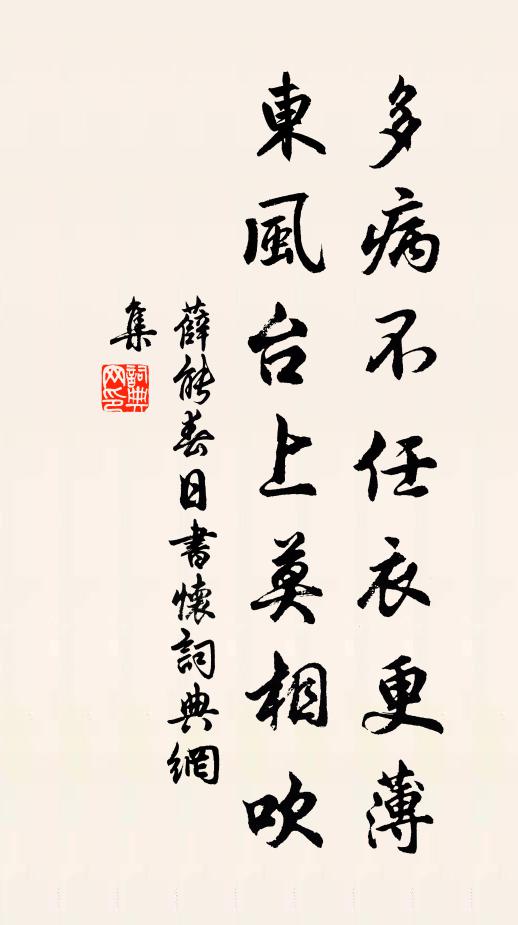 多病不任衣更薄
東風台上莫相吹
薛能春日書懷詞典網
集
詞典
网印